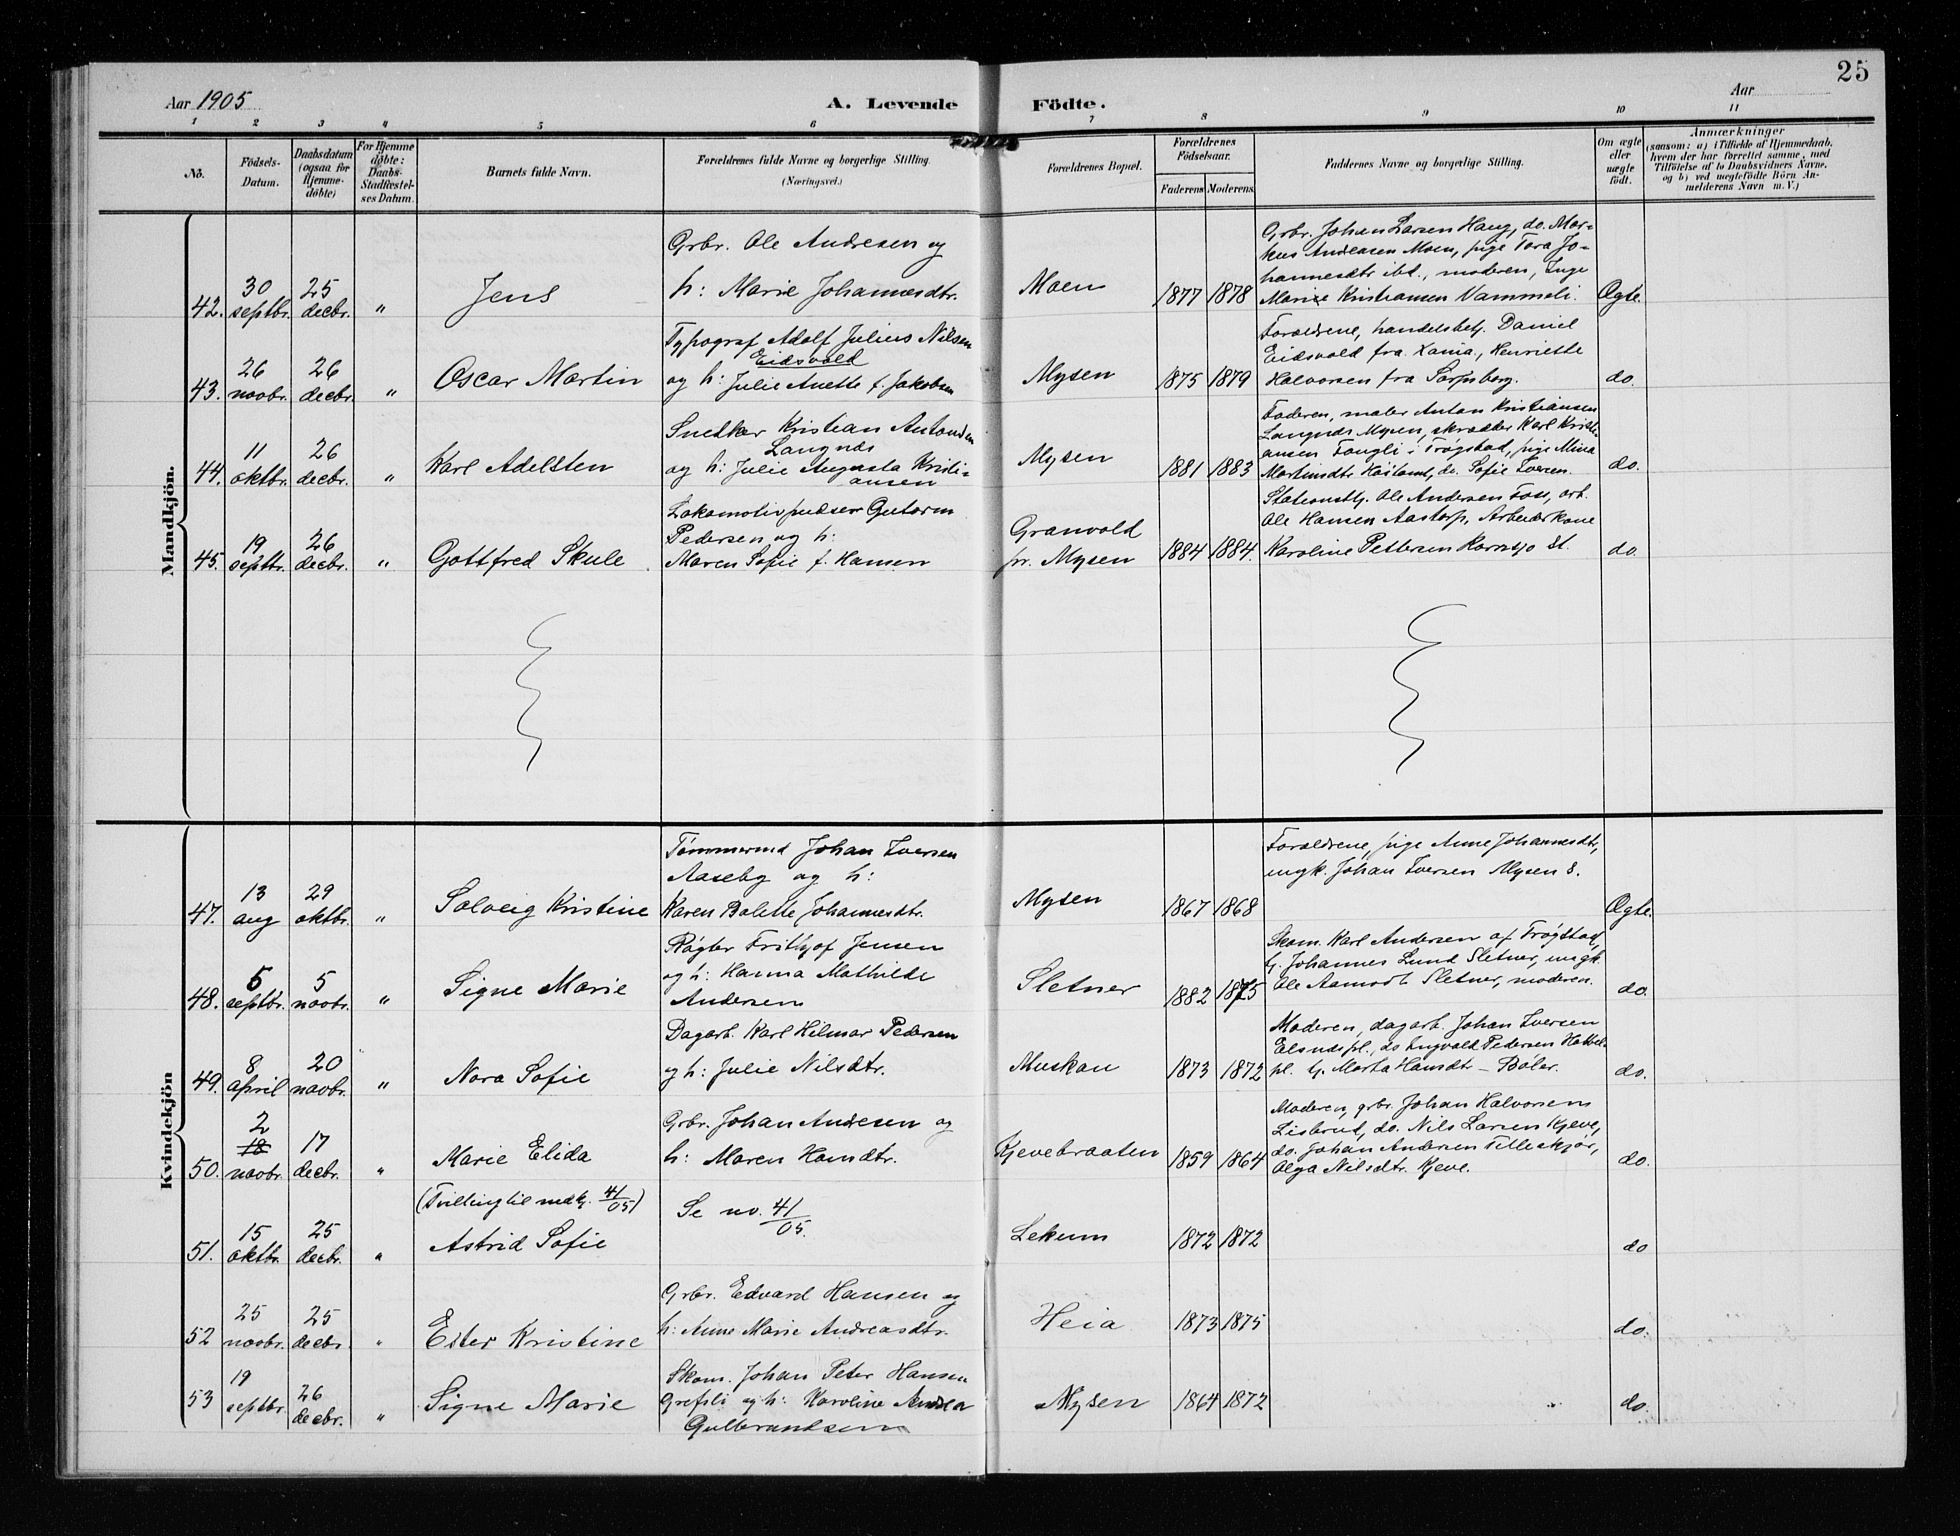 25
Aar 1905
A. Levende
Födte.
Aar
1 2 3 4 5 6 7 8 9 10 11
No.
Födsels-
Datum.
Daabsdatum
(ogsaa for
Hjemme-
døbte)
For Hjemme
døbte:
Daabs-
Stadfæstel-
ses Datum.
Barnets fulde Navn.
Forældrenes fulde Navne og borgerlige Stilling.
(Næringsvei.)
Forældrenes Bopæl.
Forældrenes
Födselsaar.
Faderens Moderens
Faddernes Navne og borgerlige Stilling.
Om ægte
eller
uægte
født.
Anmærkninger
(saasom: a) i Tilfælde af Hjemmedaab,
hvem der har forrettet samme, med
Tilföielse af to Daabsvidners Navne,
og b) ved uægtefödte Börn An-
melderens Navn m. V.)
Mandkjön.
42.
30
septbr.
25
decbr.
"
Jens
Grbr. Ole Andresen og
h: Marie Johannesdtr.
Moen
1877 1878
Grbr. Johan Larsen Haug, do. Mar-
kus Andreasen Moen, pige Tora Jo-
hannesdtr ibd., moderen, Inge
Marie Kristiansen Vammeli.
Ægte.
43.
26
novbr.
26
decbr.
"
Oscar Martin
Typograf Adolf Julius Nilsen
Eidsvold
og h: Julie Anette f. Jakobsen
Mysen
1875 1879
Forældrene, handelsbetj. Daniel
Eidsvold fra Xania, Henriette
Halvorsen fra Sarpsborg.
do.
44.
11
oktbr.
26
decbr.
"
Karl Adelsten
Snedker Kristian Antonsen
Langnæs
og h: Julie Augusta Kristi-
ansen
Mysen
1881 1883
Faderen, maler Anton Kristiansen
Langnæs Mysen, skrædder Karl Kristi-
ansen Fangli i Trøgstad, pige Mina
Martinsdtr do. Sofie Iversen.
do.
45.
19
septbr.
26
decbr.
"
Gottfred Skule
Lokomotivpudser Gutorm
Pedersen og h:
Maren Sofie f. Hansen
Granvold
pr. Mysen
1884 1884.
Stationsbtj. Ole Andersen Foss, arb.
Ole Hansen Aastorp, Arbeiderkone
Karoline Pettersen Kornsjø St.
do.
Kvindekjön
47.
13
aug
29
oktbr.
"
Solveig Kristine
Tømmermd Johan Iversen
Aaseby og h:
Karen Bolette Johannesdtr.
Mysen
1867 1868
Forældrene, pige Anne Johannesdtr,
ungk. Johan Iversen Mysen S.
Ægte.
48.
5
septbr.
5
novbr.
"
Signe Marie
Røgter Frithjof Jensen
og h: Hanna Mathilde
Andersen
Sletner
1882 1875
Skom. Karl Andersen af Trøgstad,
tj. Johannes Lund Sletner, ungk.
Ole Aamodt Sletner, moderen.
do.
49.
8
april
20
novbr.
"
Nora Sofie
Dagarb. Karl Hilmar Pedersen
og h: Julie Nilsdtr.
Muskau
1873 1872
Moderen, dagarb. Johan Iversen
Elsnespl., do Ingvald Pedersen
pl. tj. Marta Hansdt – Bøler.
do.
50.
2
18
novbr.
17
decbr.
"
Marie Elida
Grbr. Johan Andresen og
h: Maren Hansdtr.
Kjevebraaten
1859 1864
Moderen, grbr. Johan Halvorsen
Lisbrud, do. Nils Larsen Kjeve,
do. Johan Andersen Tilleskjør,
Olga Nilsdtr. Kjeve.
do.
51.
15
oktbr.
25
decbr.
"
(Tvilling til mdkj. 41/05)
Astrid Sofie
Se no. 41/05.
Lekum
1872 1872
do
52
25
novbr.
25
decbr.
"
Ester Kristine
Grbr. Edvard Hansen og
h: Anne Marie Andreasdtr.
Heia
1873 1875
do.
53
19
septbr.
26
decbr.
"
Signe Marie
Skom. Johan Peter Hansen
Grefsli og h: Karoline Andrea
Gulbrandsen
Mysen
1864 1872
do.